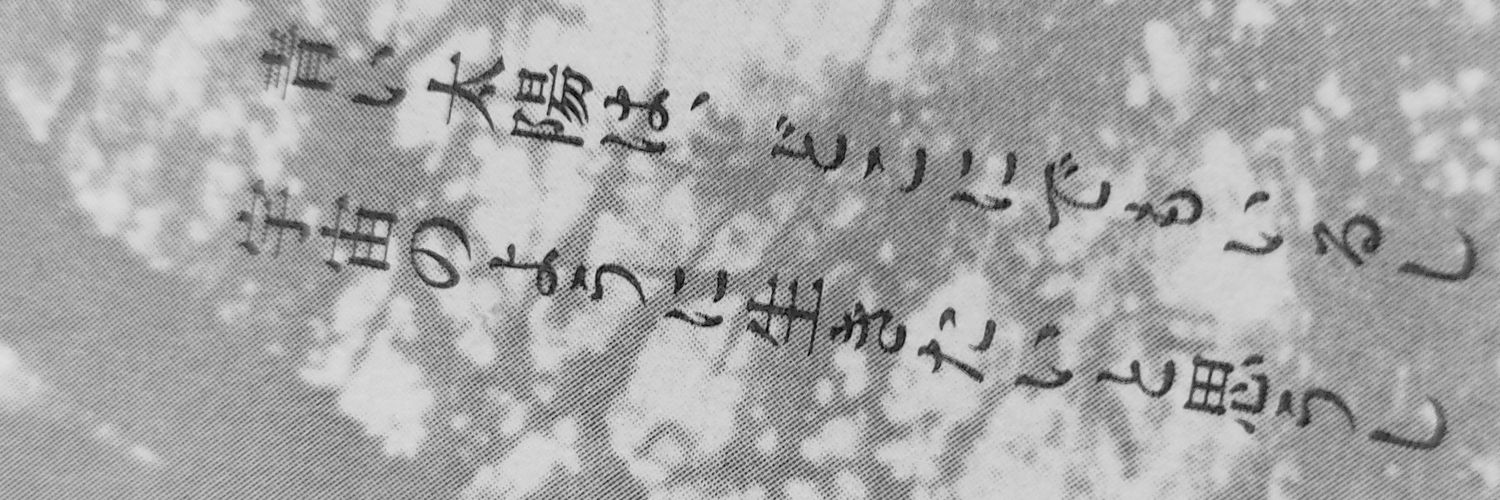 青い太陽は、どこにでもいるし
宇宙のように生きたいと思うし